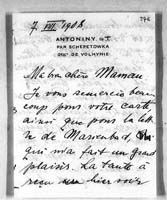 7 VII 1908.
ANTONINY
PAR SCHEPETOWKA
GOUV. DE VOLHYNIE
Ma bien chère Maman
Je vous remercie beau-
coup pour votre carte
ainsi que pour la lettre
de Marienbad,
qui m'a fait un grand
plaisir. La tante a
reçu hier soir